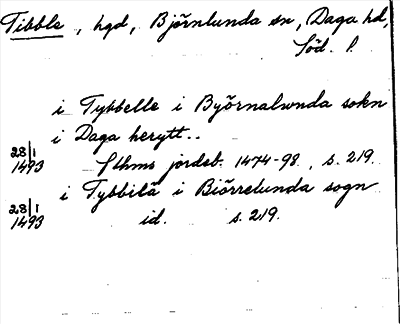 Tibble, hgd, Björnlunda sn, Daga hd,
Söd. l.
i Tybbelle i Byörnalwnda sokn
i Daga herytt..
28/1 1493 Sthms jordeb. 1474-98, s. 219.
i Tybbilä i Biörrelunda sogn
28/1 1493 id. s. 219.